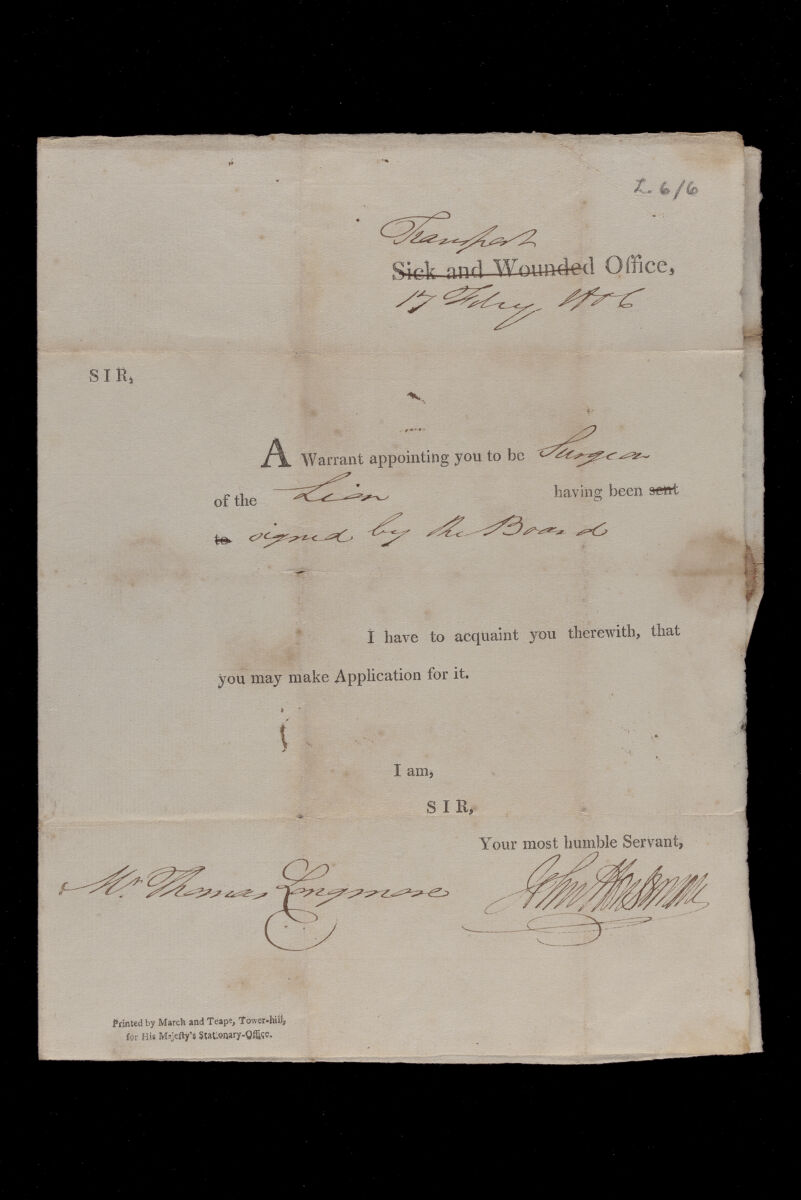 L. 6/6
Transport
Sick and Wounded Office,
17 Feby 1806
SIR,
A Warrant appointing you to be Surgeon
of the Lion having been sent
to signed by the Board
I have to acquaint you therewith, that
you may make Application for it.
I am,
SIR,
Your most humble Servant,
Mr Thomas Longmore John
Printed by March and Teape, Tower-hill,
for His Majesty's Stationary-Office.